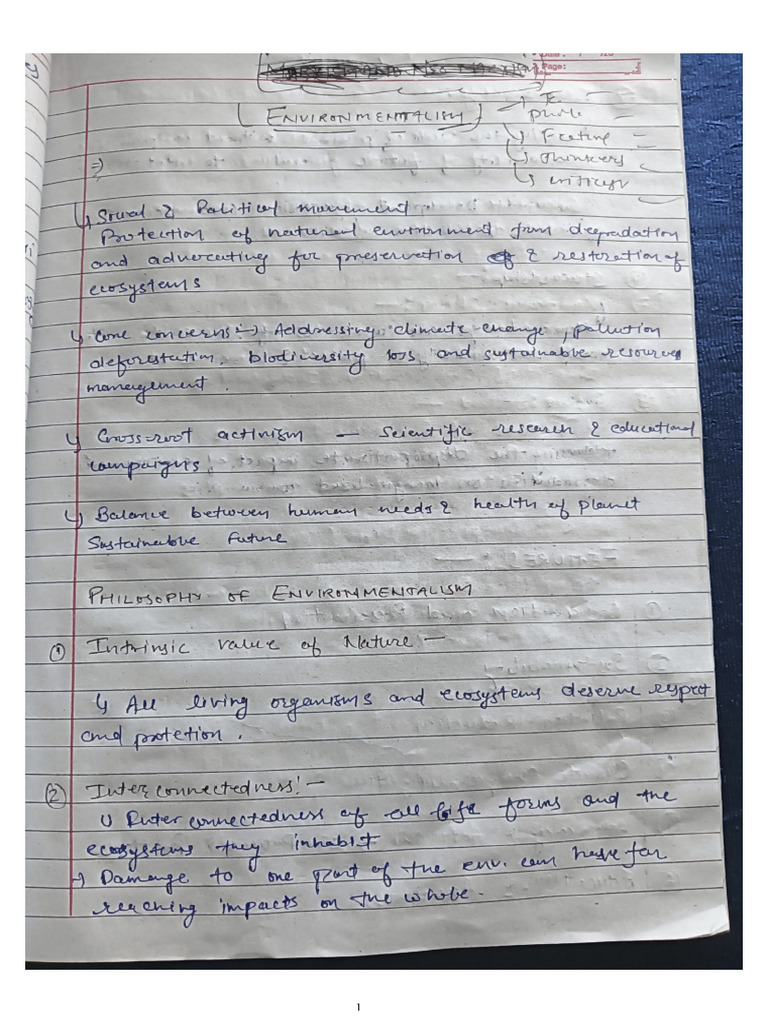 Page:
ENVIRONMENTALISM
Feature
thinkers
criticism
Social & Political movement.
Protection of natural environment from degradation
and advocating for preservation & restoration of
ecosystems
Core concerns:→ Addressing climate change, pollution
deforestation, biodiversity loss and sustainable resources
management.
Gross-root activism — Scientific research & educational
campaigns.
Balance between human needs & health of planet
Sustainable future
PHILOSOPHY OF ENVIRONMENTALISM
① Intrinsic value of Nature:—
↳ All living organisms and ecosystems deserve respect
and protetion.
② Interconnectedness:—
Interconnectedness of all life forms and the
ecosystems they inhabit
→ Damage to one part of the env. can have far
reaching impacts on the whole.
1